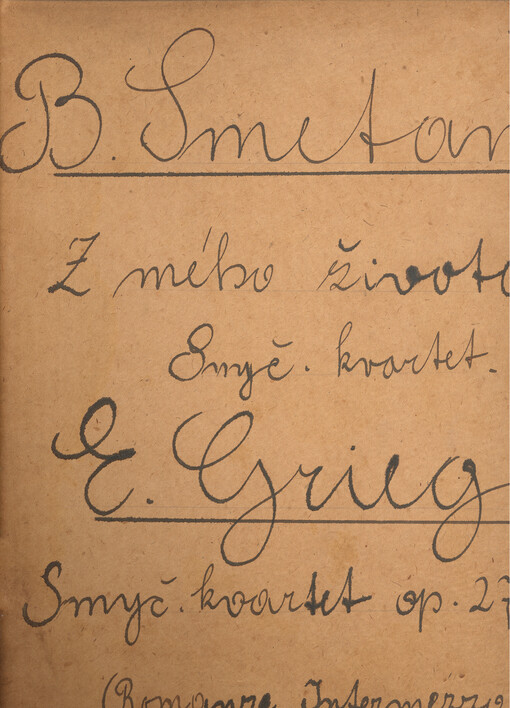 B. Smetan
Z mého života
Smyč. kvartet.
E. Grieg
Smyč. kvartet op. 27
(Romanze Intermezzo